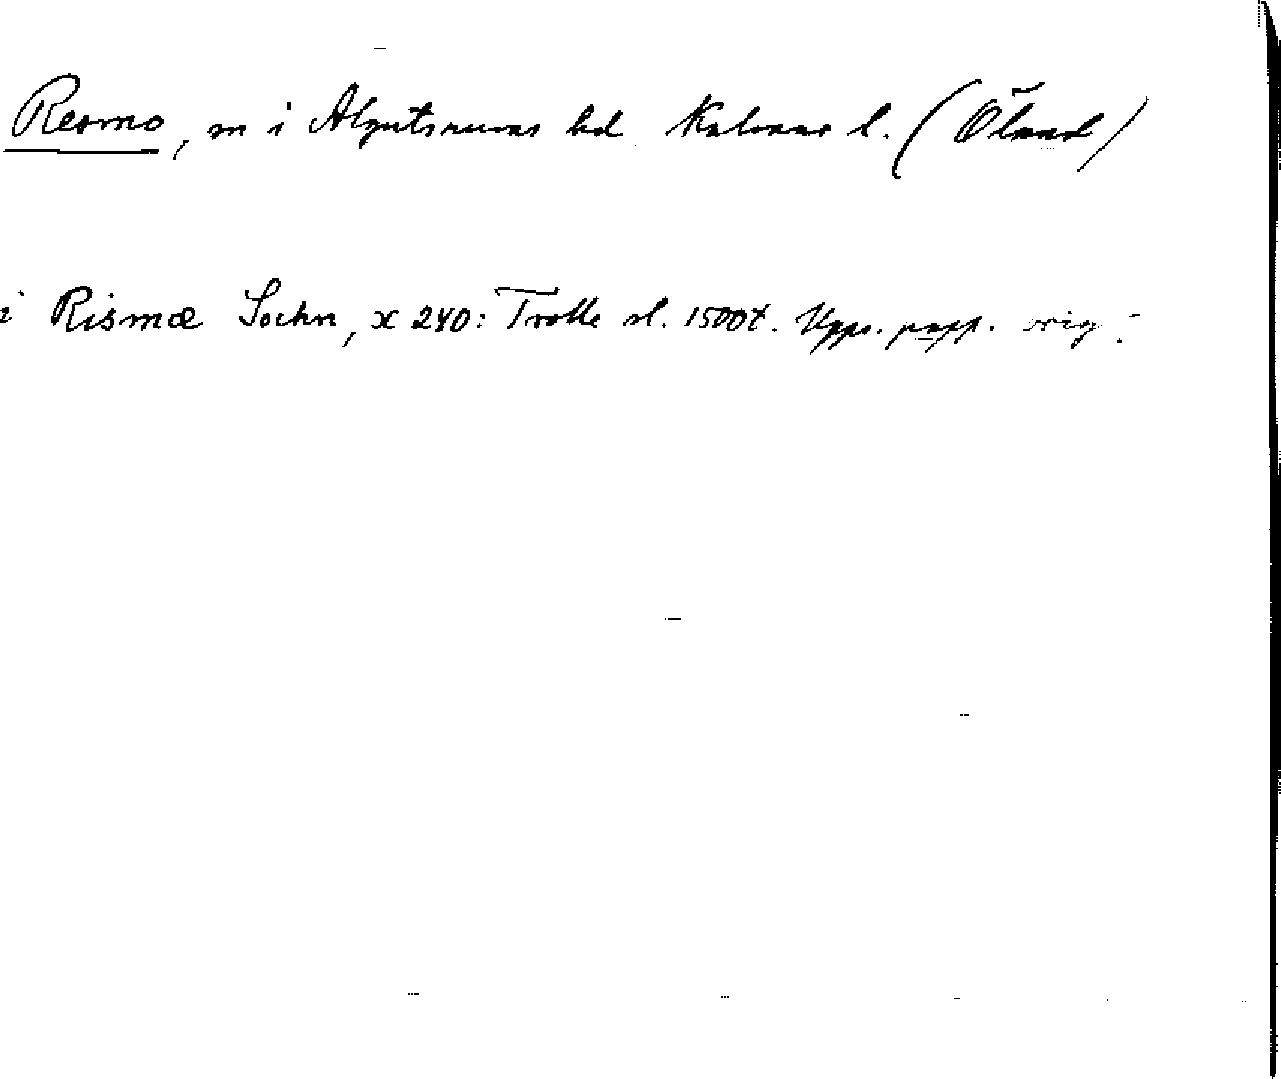 Resmo, sn i Algutsrums hd Kalmar l. (Öland)
i Rismæ Sochn, x 240: Trolle sl. 1500t. Upps. papp. orig.